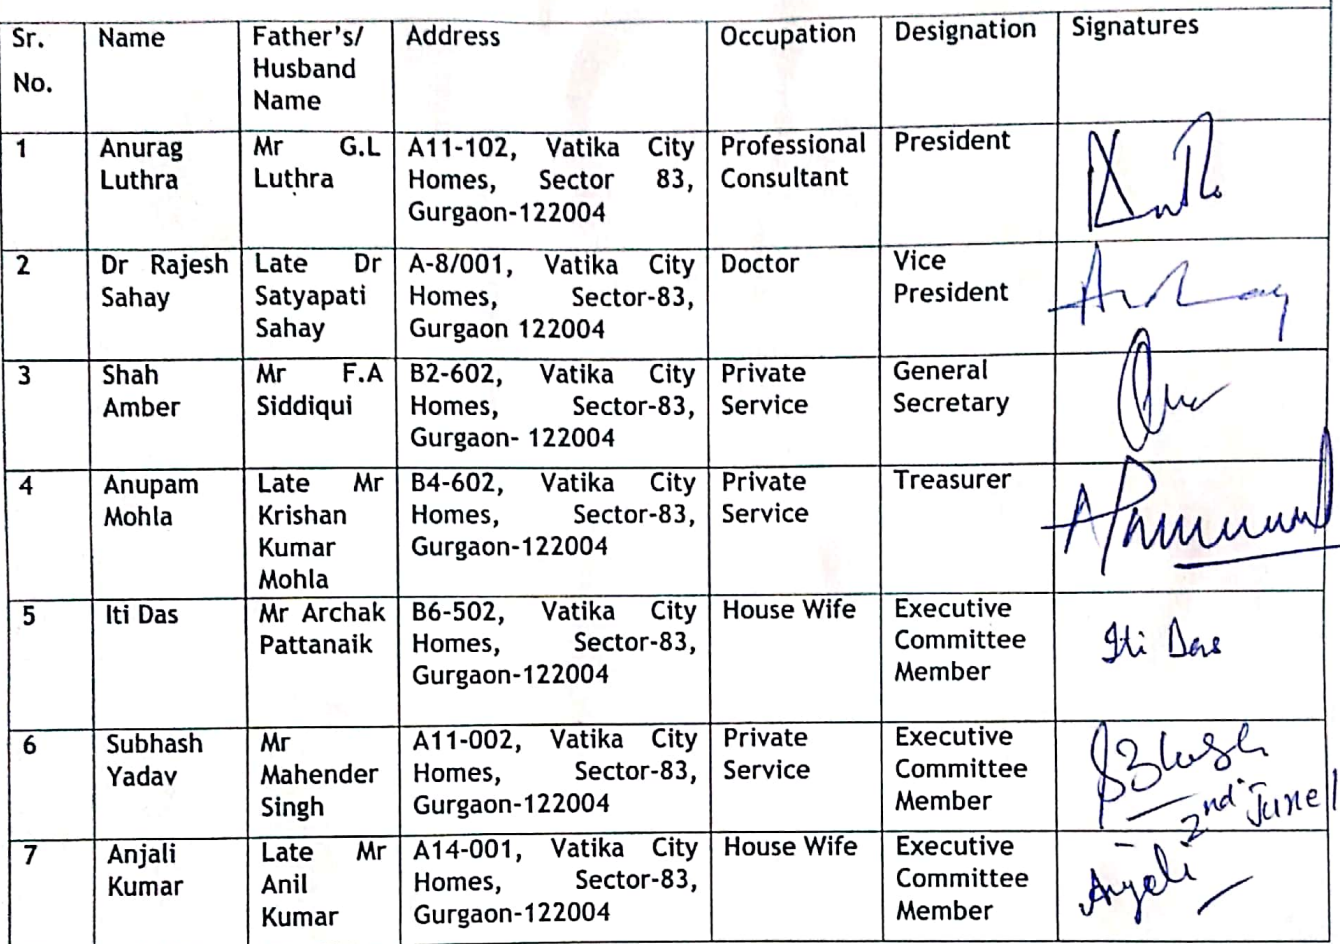 Sr. No. Name Father's/ Husband Name Address Occupation Designation Signatures
1 Anurag Luthra Mr G.L Luthra A11-102, Vatika City Homes, Sector 83, Gurgaon-122004 Professional Consultant President
2 Dr Rajesh Sahay Late Dr Satyapati Sahay A-8/001, Vatika City Homes, Sector-83, Gurgaon 122004 Doctor Vice President
3 Shah Amber Mr F.A Siddiqui B2-602, Vatika City Homes, Sector-83, Gurgaon- 122004 Private Service General Secretary
4 Anupam Mohla Late Mr Krishan Kumar Mohla B4-602, Vatika City Homes, Sector-83, Gurgaon-122004 Private Service Treasurer
5 Iti Das Mr Archak Pattanaik B6-502, Vatika City Homes, Sector-83, Gurgaon-122004 House Wife Executive Committee Member Iti Das
6 Subhash Yadav Mr Mahender Singh A11-002, Vatika City Homes, Sector-83, Gurgaon-122004 Private Service Executive Committee Member 2nd June
7 Anjali Kumar Late Mr Anil Kumar A14-001, Vatika City Homes, Sector-83, Gurgaon-122004 House Wife Executive Committee Member Anjali